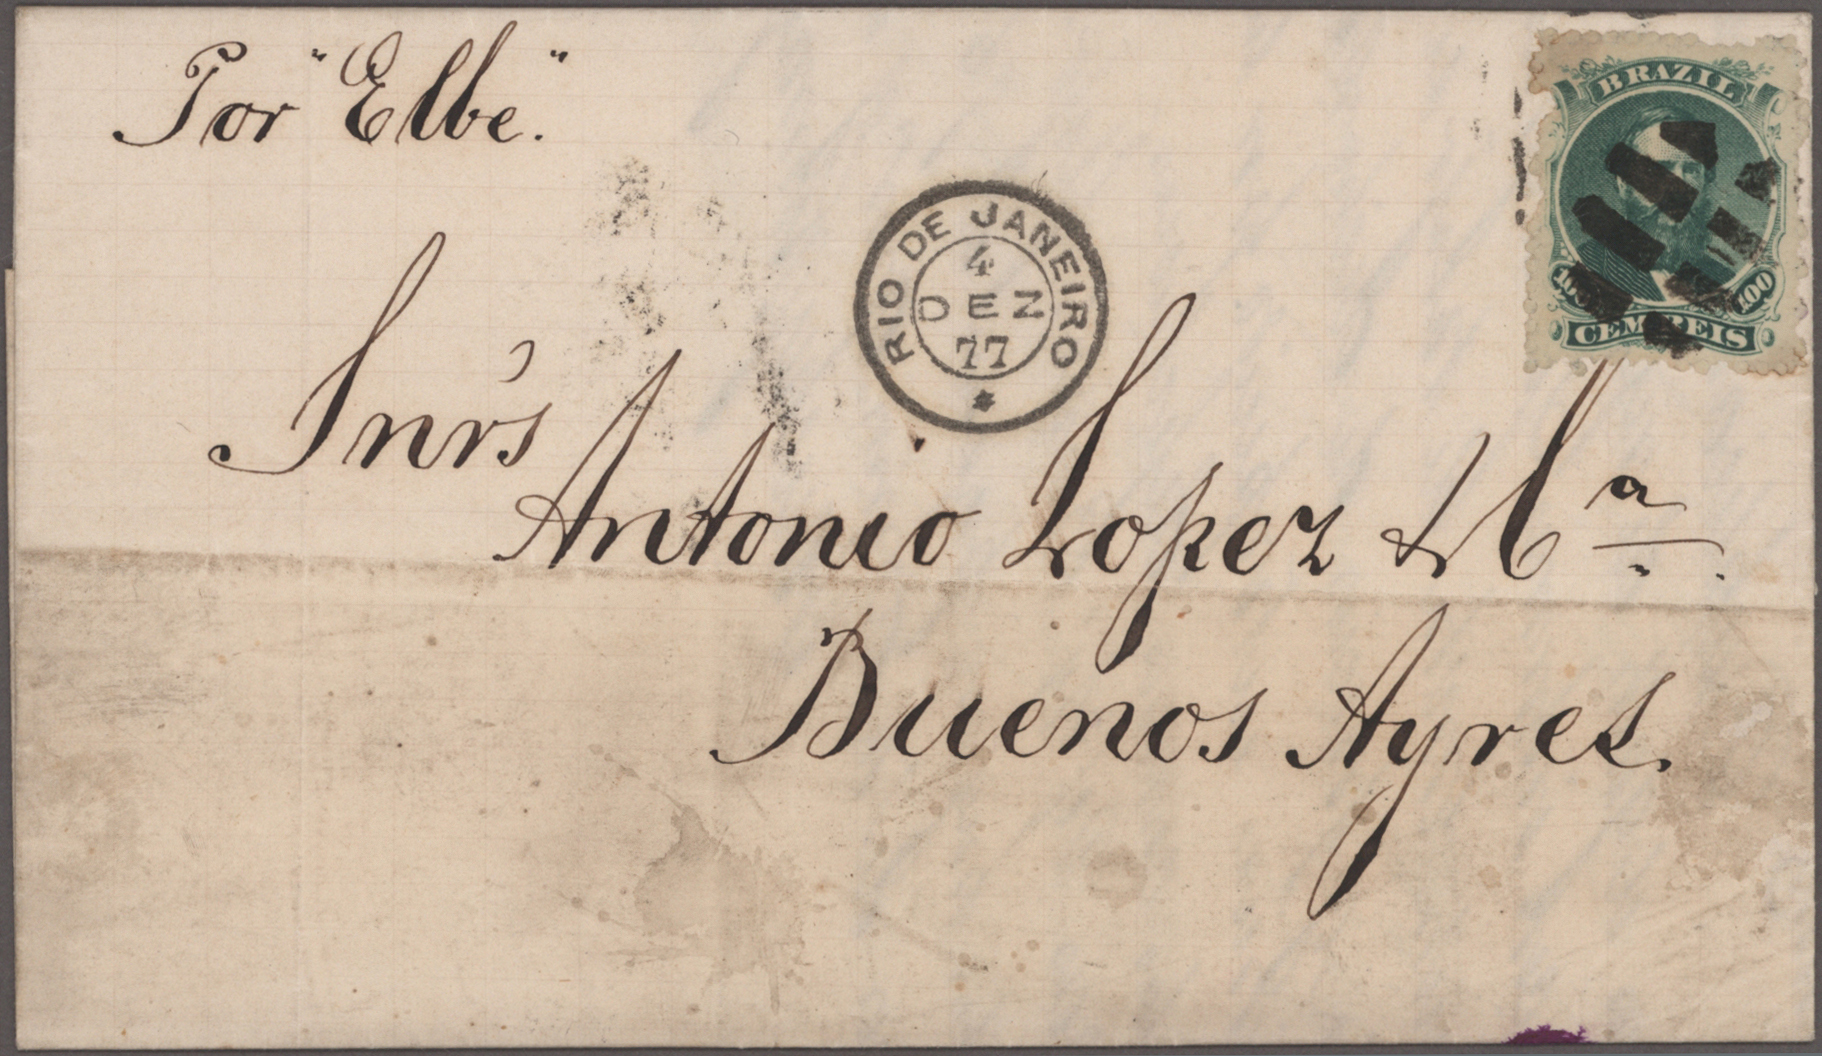 Por "Elbe".
BRAZIL
100 100
CEM REIS
RIO DE JANEIRO
4
DEZ
77
*
Snrs
Antonio Lopez & Ca.
Buenos Ayres.